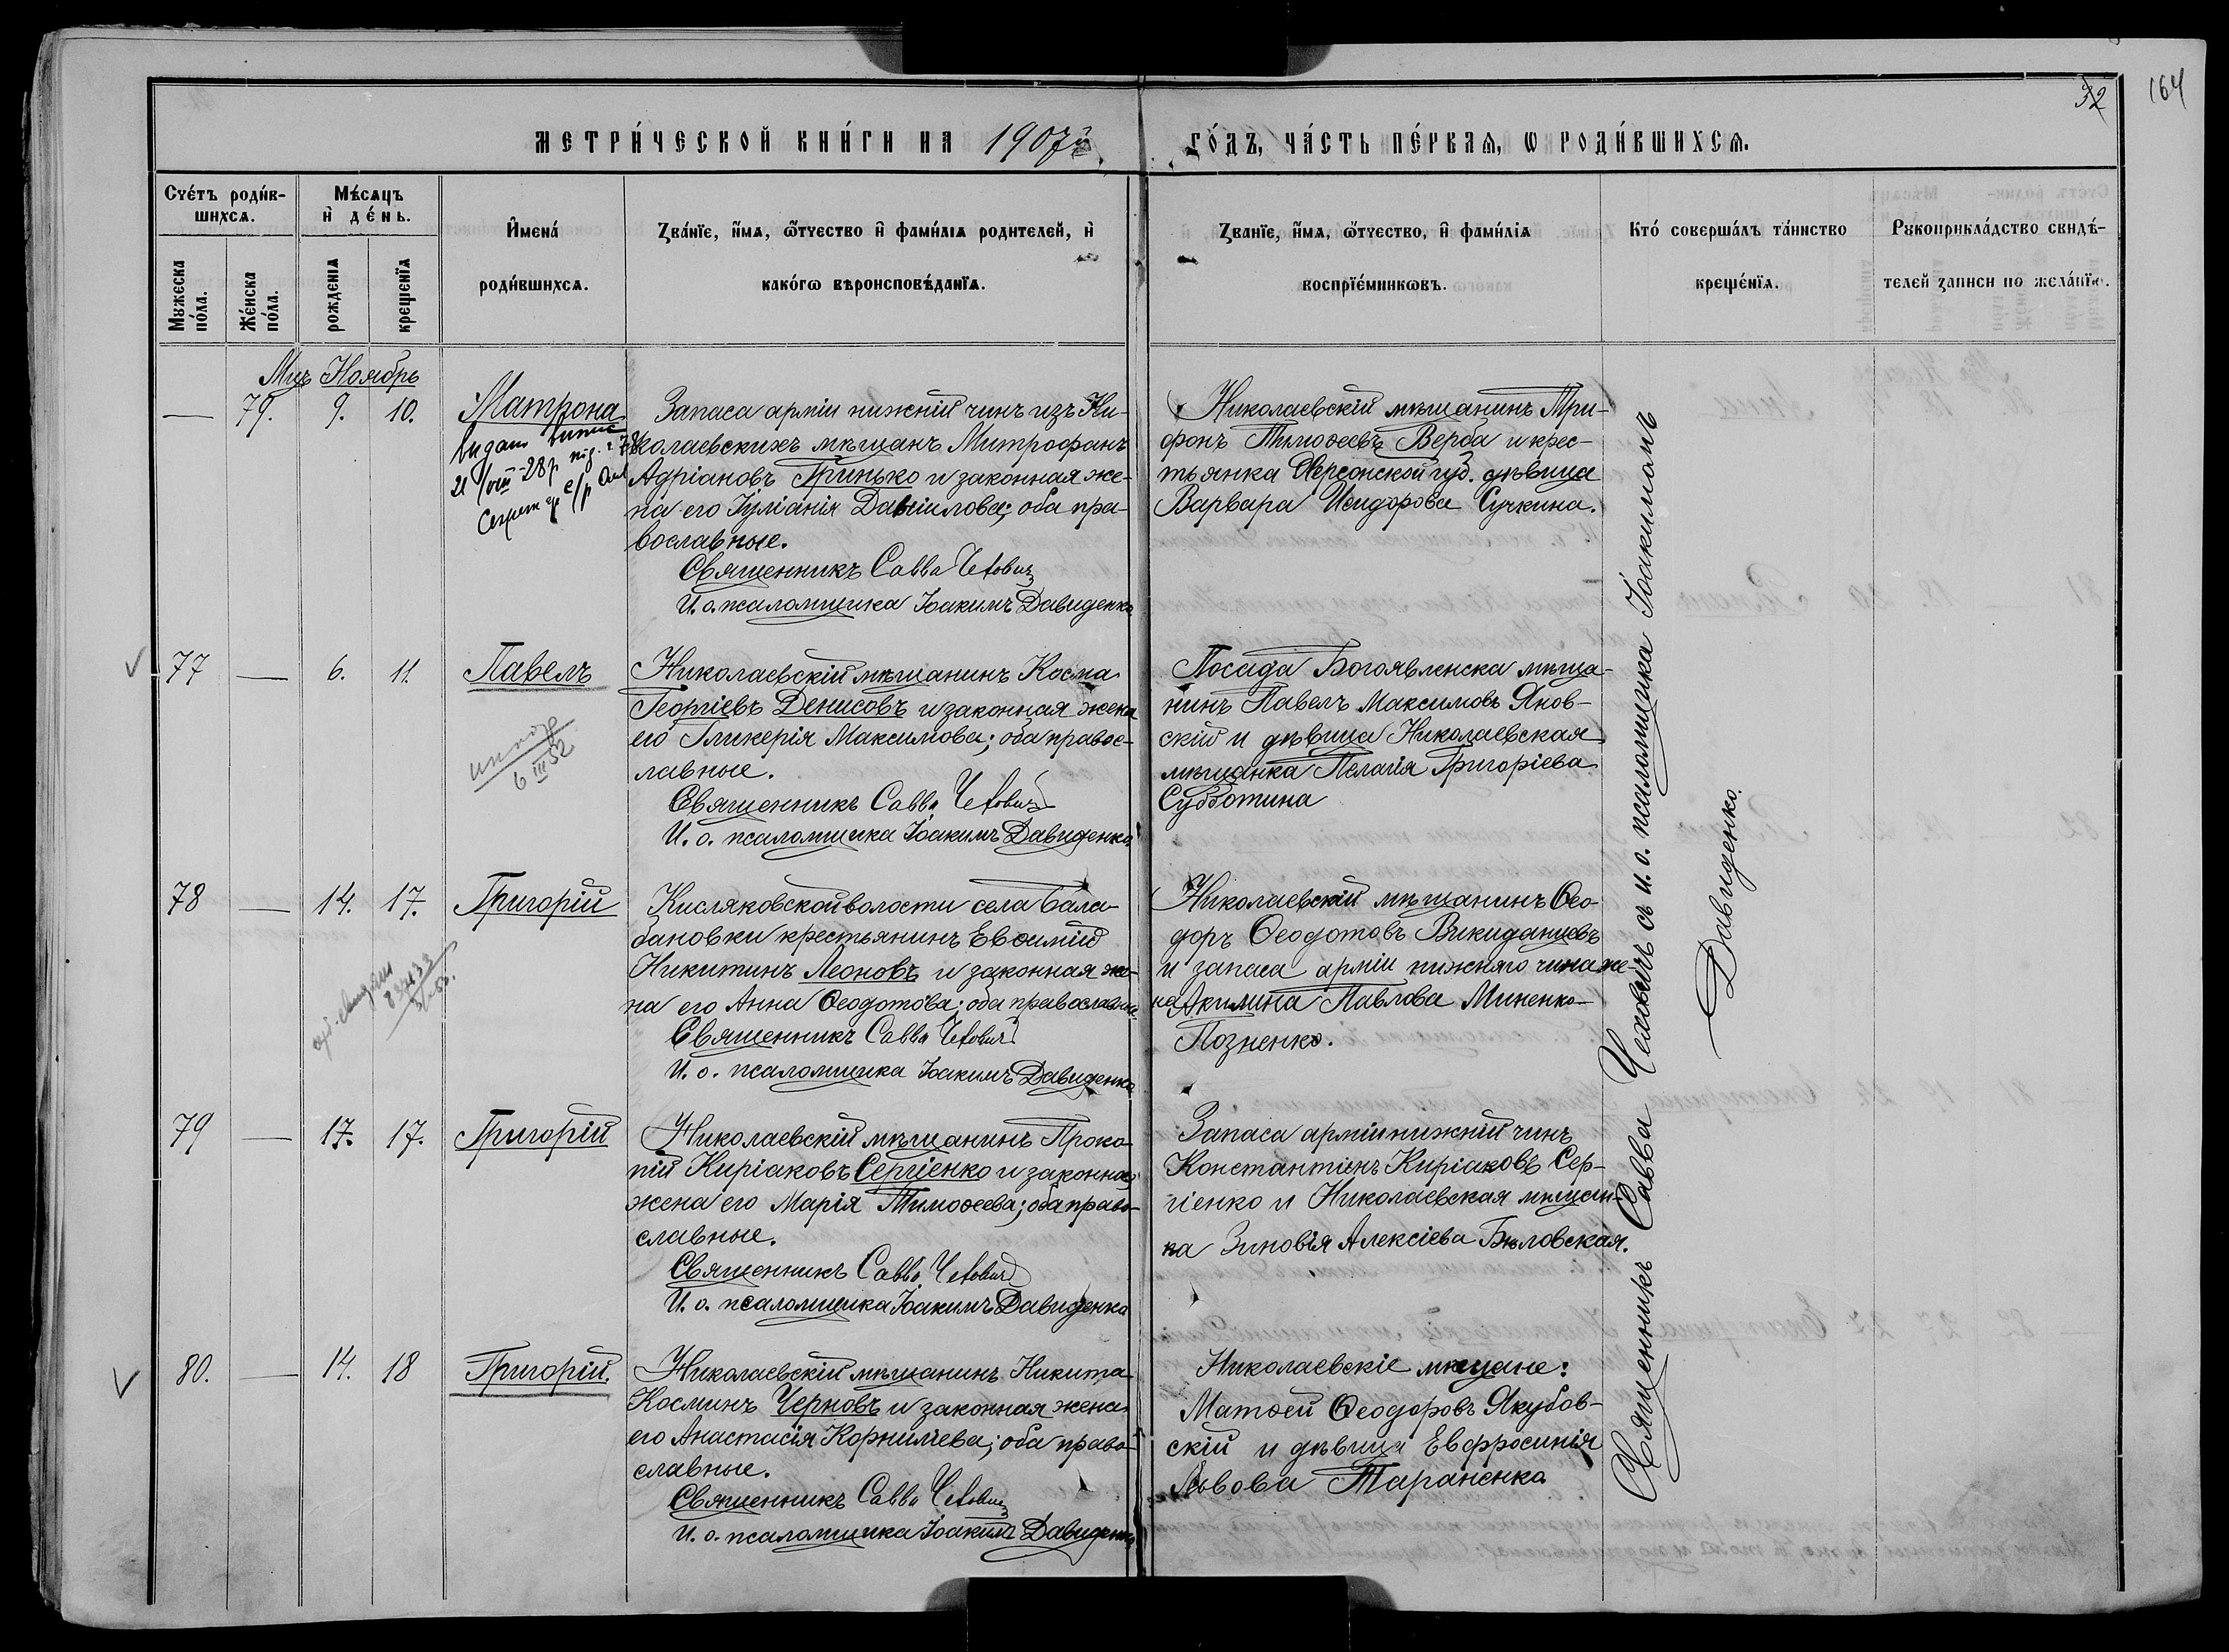 32
164
МЕТРИ́ЧЕСКОЙ КНИ́ГИ НА 1907й
ГО́ДЪ, ЧА́СТЬ ПЕ́РВАѦ, Ѡ РОДИ́ВШИХСѦ.
Сче́тъ роди́в-
шихсѧ.
Мꙋжеска
по́ла.
Же́нска
по́ла.
Мѣ́сѧцъ
и҆ де́нь.
рожденїѧ
крещенїѧ
И҆мена́
роди́вшихсѧ.
Зва́нїе, и҆́мѧ, ѻ҆́тчество и҆ фами́лїѧ родителей, и҆
како́гѡ вѣроисповѣ́данїѧ.
Званїе, и҆́мѧ, ѻ҆́тчество, и҆ фами́лїѧ
воспрїе́мникѡвъ.
Кто́ соверша́лъ та́инство
креще́нїѧ.
Рꙋкоприкла́дство свидѣ́-
телей записи по жела́нїю.
Мцъ Ноябрь
— 79. 9. 10. Матрона
21/VIII-28р
Запаса арміи нижній чинъ изъ Ни-
колаевскихъ мѣщанъ Митрофанъ
Адріановъ Гринько и законная же-
на его Іуліанія Давіилова; оба пра-
вославные.
Священникъ Савва Чехович
И. о. псаломщика Іоакимъ Давиденко
Николаевскій мѣщанинъ Три-
фонъ Тимоѳеевъ Верба и крес-
тьянка Херсонской губ. дѣвица
Варвара Исидорова Сучкина.
77 — 6. 11. Павелъ
6 III 52
Николаевскій мѣщанинъ Косма
Георгіевъ Денисовъ и законная жена
его Гликерія Максимова; оба правос-
лавные.
Священникъ Савва Чехович
И. о. псаломщика Іоакимъ Давиденко
Посада Богоявленска мѣща-
нинъ Павелъ Максимовъ Янов-
скій и дѣвица Николаевская
мѣщанка Пелагія Григоріева
Субботина
78 — 14. 17. Григорій
Кисляковской волости села Бала-
бановки крестьянинъ Евѳимій
Никитинъ Леоновъ и законная же-
на его Анна Ѳеодотова; оба православные
Священникъ Савва Чехович
И. о. псаломщика Іоакимъ Давиденко
Николаевскій мѣщанинъ Ѳео-
доръ Ѳеодотовъ Викиданцевъ
и запаса арміи нижняго чина же-
на Акилина Павлова Миненко-
Позненко.
79 — 17. 17. Григорій
Николаевскій мѣщанинъ Проко-
пій Киріаковъ Сергіенко и законная
жена его Марія Тимоѳеева; оба право-
славные.
Священникъ Савва Чехович
И. о. псаломщика Іоакимъ Давиденко
Запаса арміи нижній чинъ
Константинъ Киріаковъ Сер-
гіенко и Николаевская мѣщан-
ка Зиновія Алексіева Бѣловская.
80. — 14. 18 Григорій.
Николаевскій мѣщанинъ Никита
Косминъ Черновъ и законная жена
его Анастасія Корниліева; оба право-
славные.
Священникъ Савва Чехович
И. о. псаломщика Іоакимъ Давиденко
Николаевскіе мѣщане:
Матѳей Ѳеодоровъ Якубов-
скій и дѣвица Евфросинія
Львова Тараненко
Священникъ Савва Чеховичъ съ и. о. псаломщика Іоакимомъ
Давиденко.